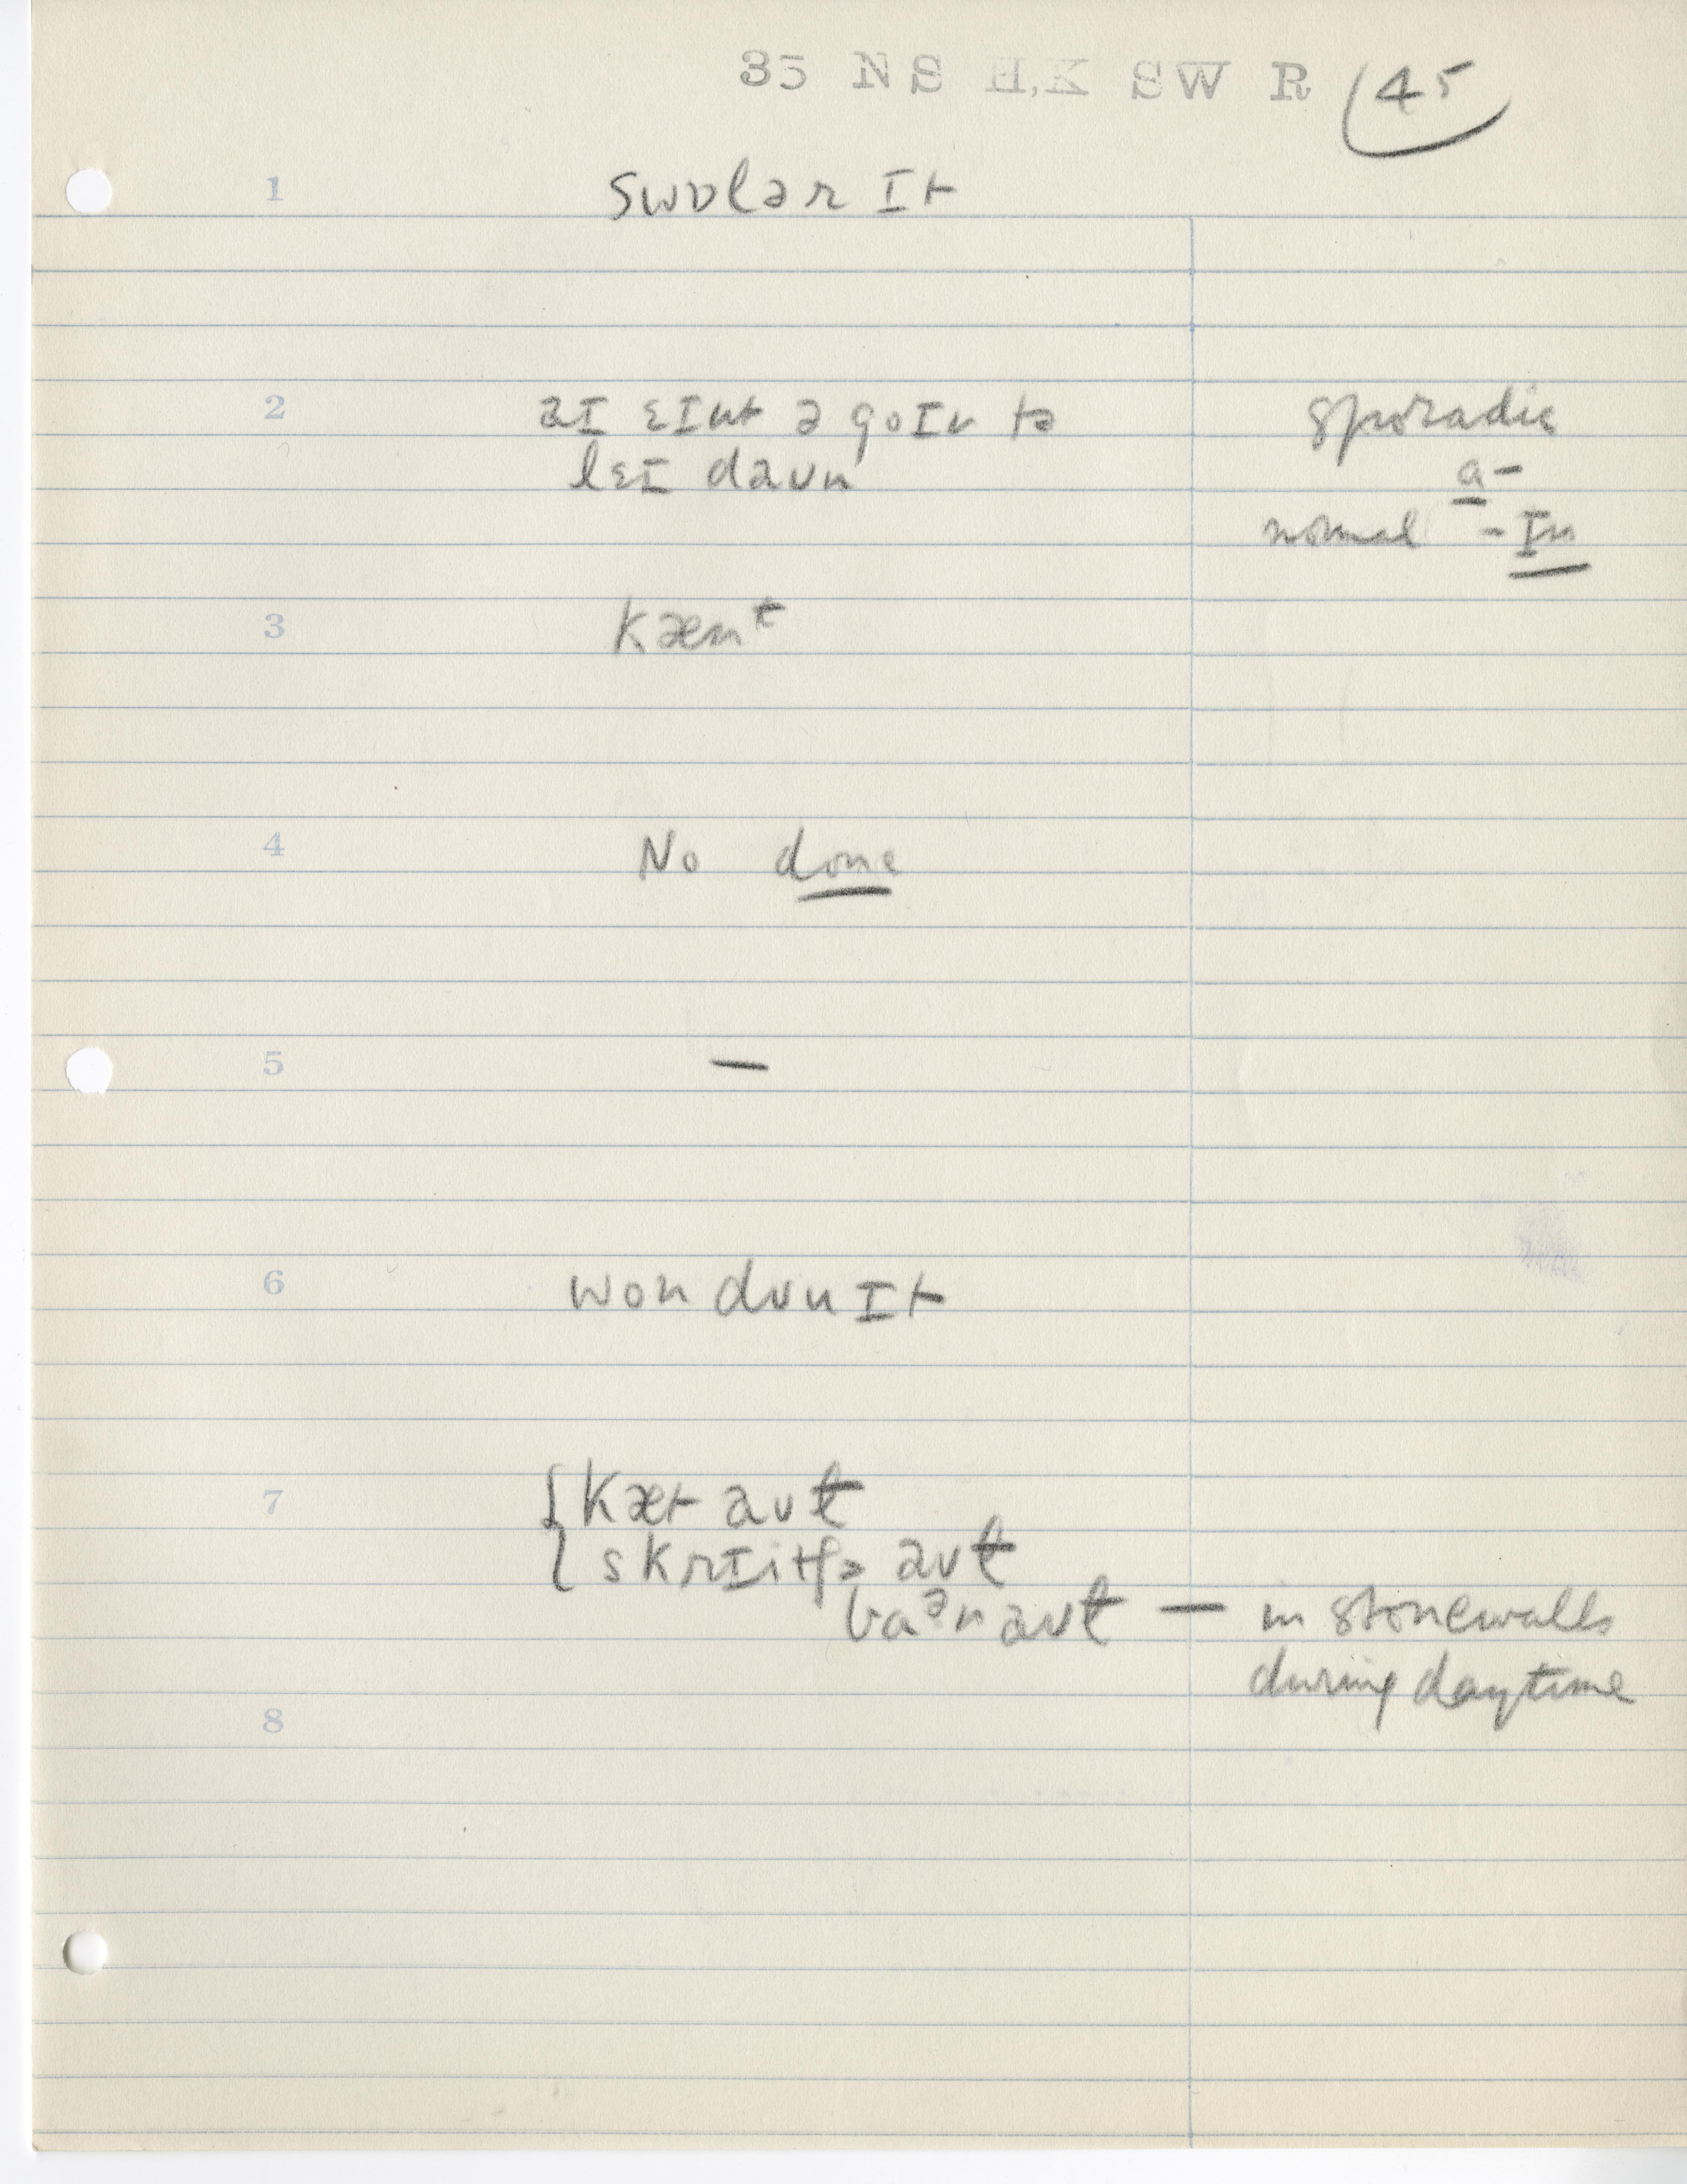 35 NS H,K SW R 45
1 swɒlər ɪt
2 aɪ ɛɪnt ə goɪn tə sporadic
lɛɪ daʊn a-
normal -ɪn
3 kæn^t
4 No done
5 —
6 won dʊn ɪt
7 { kæt aʊt
{ skrɪitʃ aʊt
ba^ən aʊt — in stonewalls
during daytime
8